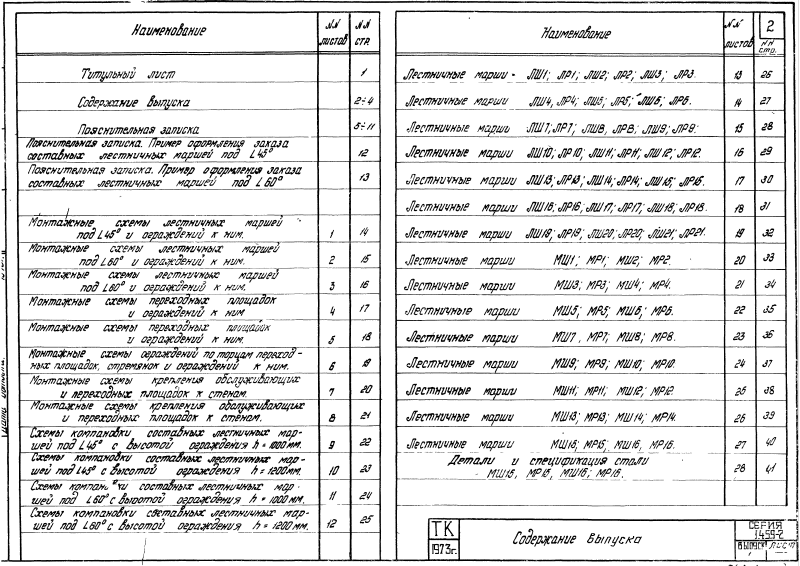 Наименование NN листов NN стр.
Титульный лист 1
Содержание выпуска 2÷4
Пояснительная записка 5÷11
Пояснительная записка. Пример оформления заказа
составных лестничных маршей под L45° 12
Пояснительная записка. Пример оформления заказа
составных лестничных маршей под L60° 13
Монтажные схемы лестничных маршей
под L45° и ограждений к ним. 1 14
Монтажные схемы лестничных маршей
под L60° и ограждений к ним. 2 15
Монтажные схемы лестничных маршей
под L60° и ограждений к ним. 3 16
Монтажные схемы переходных площадок
и ограждений к ним 4 17
Монтажные схемы переходных площадок
и ограждений к ним. 5 18
Монтажные схемы ограждений по торцам переход-
ных площадок, стремянок и ограждений к ним. 6 19
Монтажные схемы крепления обслуживающих
и переходных площадок к стенам. 7 20
Монтажные схемы крепления обслуживающих
и переходных площадок к стенам. 8 21
Схемы компановки составных лестничных мар-
шей под L45° с высотой ограждения h = 1000мм. 9 22
Схемы компановки составных лестничных мар-
шей под L45° с высотой ограждения h = 1200мм. 10 23
Схемы составных лестничных мар-
шей под L60° с высотой ограждения h = 1000мм. 11 24
Схемы компановки составных лестничных мар-
шей под L60° с высотой ограждения h = 1200мм. 12 25
2
Наименование NN листов NN стр.
Лестничные марши - ЛШ1; ЛР1; ЛШ2; ЛР2; ЛШ3; ЛР3. 13 26
Лестничные марши ЛШ4, ЛР4; ЛШ5, ЛР5; ЛШ6, ЛР6. 14 27
Лестничные марши ЛШ7; ЛР7; ЛШ8, ЛР8; ЛШ9; ЛР9; 15 28
Лестничные марши ЛШ10; ЛР10; ЛШ11; ЛР11; ЛШ12; ЛР12. 16 29
Лестничные марши ЛШ13; ЛР13; ЛШ14; ЛР14; ЛШ15; ЛР15. 17 30
Лестничные марши ЛШ16; ЛР16; ЛШ17; ЛР17; ЛШ18; ЛР18. 18 31
Лестничные марши ЛШ19; ЛР19; ЛШ20; ЛР20; ЛШ21; ЛР21. 19 32
Лестничные марши МШ1; МР1; МШ2; МР2. 20 33
Лестничные марши МШ3; МР3; МШ4; МР4. 21 34
Лестничные марши МШ5; МР5; МШ6; МР6. 22 35
Лестничные марши МШ7, МР7; МШ8; МР8. 23 36
Лестничные марши МШ9; МР9; МШ10; МР10. 24 37
Лестничные марши МШ11; МР11; МШ12; МР12 25 38
Лестничные марши МШ13; МР13; МШ14; МР14. 26 39
Лестничные марши МШ15; МР15; МШ16, МР16. 27 40
Детали и спецификация стали
МШ15, МР15, МШ16; МР16. 28 41
ТК
1973г.
Содержание выпуска
СЕРИЯ
1.459-2
ВЫПУСК ЛИСТ
1 -